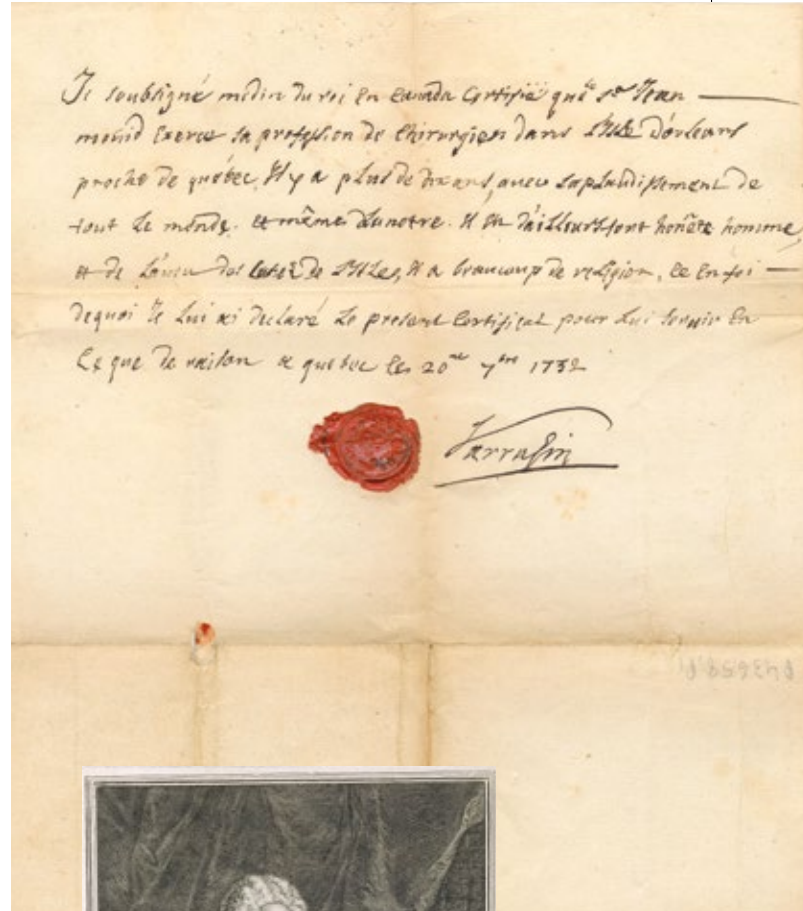 Je soubsigné medin du roi en Canada Certifie que le sr Jean
mouid Exerce sa profession de Chirurgien dans L'Isle D'orleans
proche de quebec, Il y a plus de dix ans, avec Laplaudissement de
tout Le monde. et même Du notre. Il est D'ailleurs fort honête homme,
et de L'aveu des Curéz de L'Isles, Il a beaucoup de religion, Ce En foi
Dequoi Je Lui ai Declaré Le present Certificat pour Lui servir En
Ce que De raison a quebec Ce 20me 7bre 1732
Sarrasin